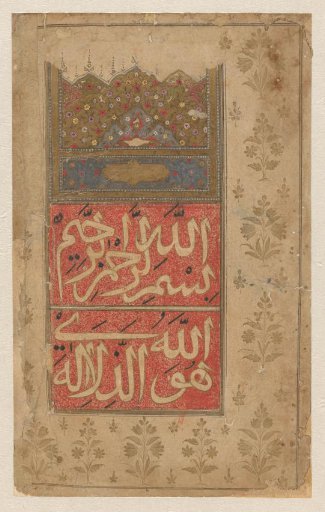 بسم الله الرحمن الرحيم
هو الله الذي لا اله